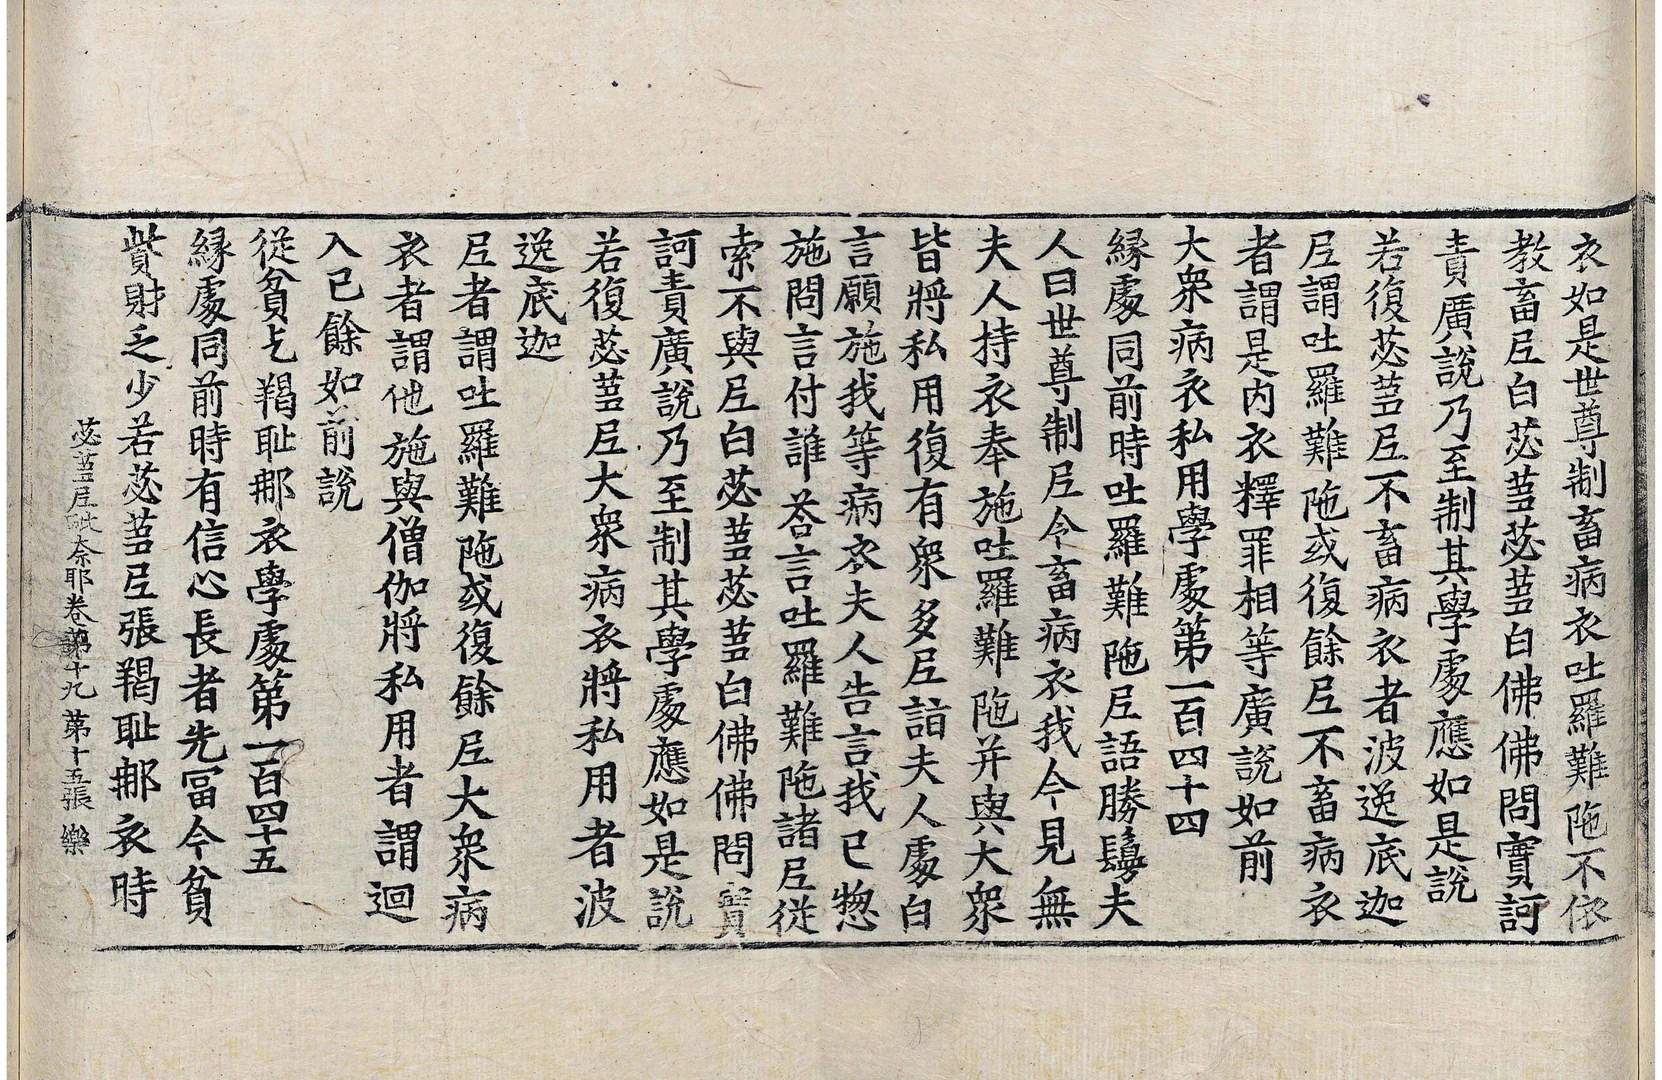 衣如是世尊制畜病衣吐羅難陁不依
教畜尼白苾蒭苾蒭白佛佛問實訶
責廣說乃至制其學處應如是說
若復苾蒭尼不畜病衣者波逸底迦
尼謂吐羅難陁或復餘尼不畜病衣
者謂是内衣釋罪相等廣說如前
大衆病衣私用學處第一百四十四
緣處同前時吐羅難陁尼語勝鬘夫
人曰世尊制尼令畜病衣我今見無
夫人持衣奉施吐羅難陁并與大衆
皆將私用復有衆多尼詣夫人處白
言願施我等病衣夫人告言我已惣
施問言付誰荅言吐羅難陁諸尼從
索不與尼白苾蒭苾蒭白佛佛問實
訶責廣說乃至制其學處應如是說
若復苾蒭尼大衆病衣將私用者波
逸底迦
尼者謂吐羅難陁或復餘尼大衆病
衣者謂他施與僧伽將私用者謂迴
入已餘如前說
從貧乞羯耻那衣學處第一百四十五
緣處同前時有信心長者先冨今貧
貲財乏少若苾蒭尼張羯耻那衣時
苾蒭尼毗奈耶卷第十九 第十五張 樂